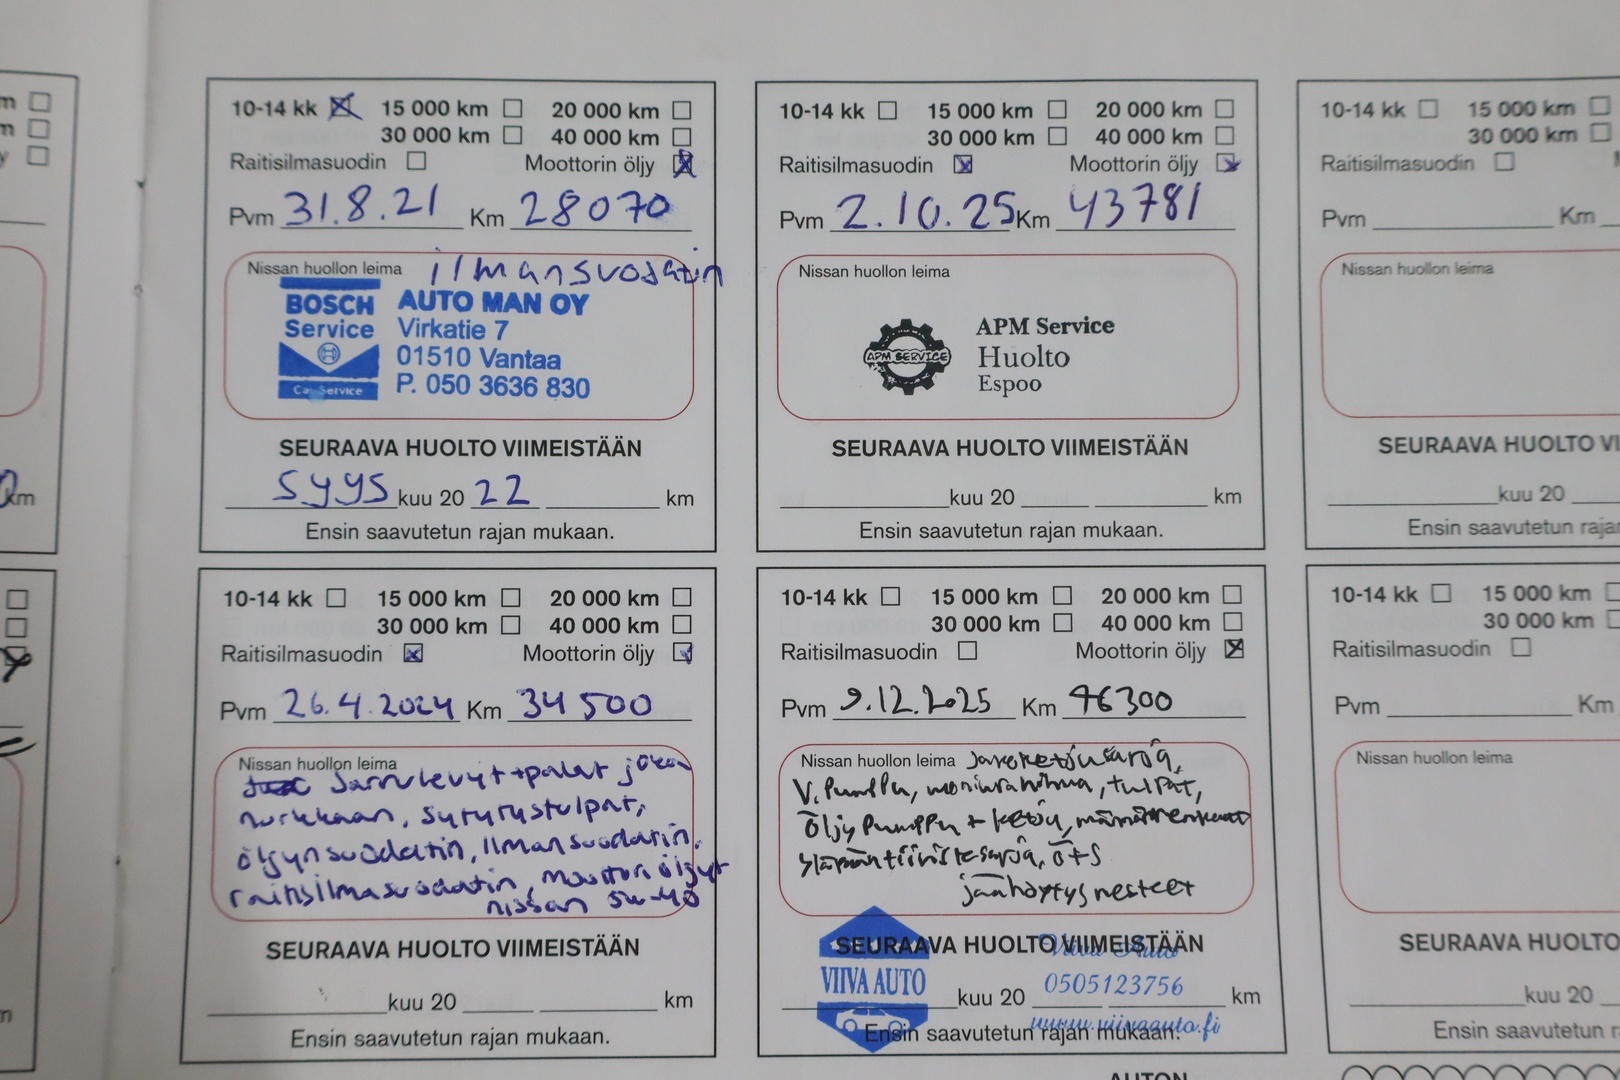 10-14 kk 15 000 km 20 000 km
30 000 km 40 000 km
Raitisilmasuodin Moottorin öljy
Pvm 31.8.21 Km 28070
Nissan huollon leima ilmansuodatin
BOSCH Service Car Service
AUTO MAN OY
Virkatie 7
01510 Vantaa
P. 050 3636 830
SEURAAVA HUOLTO VIIMEISTÄÄN
syys kuu 20 22 km
Ensin saavutetun rajan mukaan.
10-14 kk 15 000 km 20 000 km
30 000 km 40 000 km
Raitisilmasuodin Moottorin öljy
Pvm 26.4.2024 Km 34 500
Nissan huollon leima
Jarrulevyt + palat joka
nurkkaan, sytytystulpat,
öljynsuodatin, Ilmansuodatin,
raitisilmasuodatin, moottoriöljyt
nissan 5w-40
SEURAAVA HUOLTO VIIMEISTÄÄN
kuu 20 km
Ensin saavutetun rajan mukaan.
10-14 kk 15 000 km 20 000 km
30 000 km 40 000 km
Raitisilmasuodin Moottorin öljy
Pvm 2.10.25 Km 43781
Nissan huollon leima
APM SERVICE
APM Service
Huolto
Espoo
SEURAAVA HUOLTO VIIMEISTÄÄN
kuu 20 km
Ensin saavutetun rajan mukaan.
10-14 kk 15 000 km 20 000 km
30 000 km 40 000 km
Raitisilmasuodin Moottorin öljy
Pvm 9.12.2025 Km 46300
Nissan huollon leima Jakoketjusarja,
V. Pumppu, moniurahihna, tulpat,
öljy Pumppu + ketju,
yläpääntiivistesarja, öts
jäähdytysnesteet
SEURAAVA HUOLTO VIIMEISTÄÄN
VIIVA AUTO
Viiva Auto
0505123756
www.viivaauto.fi
kuu 20 km
Ensin saavutetun rajan mukaan.
10-14 kk 15 000 km
30 000 km
Raitisilmasuodin
Pvm Km
Nissan huollon leima
SEURAAVA HUOLTO
kuu 20
Ensin saavutetun
10-14 kk 15 000 km
30 000 km
Raitisilmasuodin
Pvm Km
Nissan huollon leima
SEURAAVA HUOLTO
kuu 20
Ensin saavutetun
km
AUTON